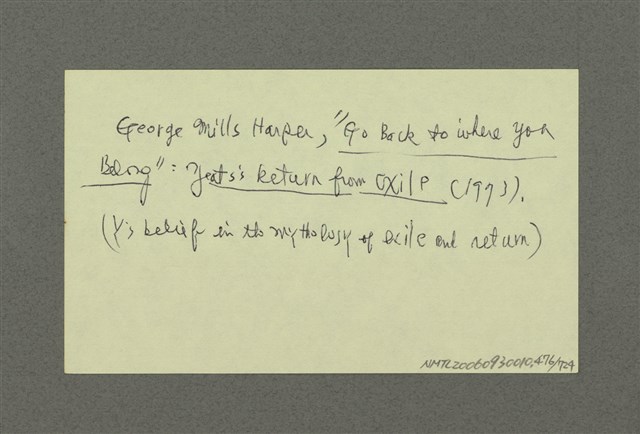 George Mills Harper, "Go Back to where you
Belong": Yeats's Return from Exile (1973).
(Y's belief in the mythology of exile and return)
NMTL20060930010.476/724